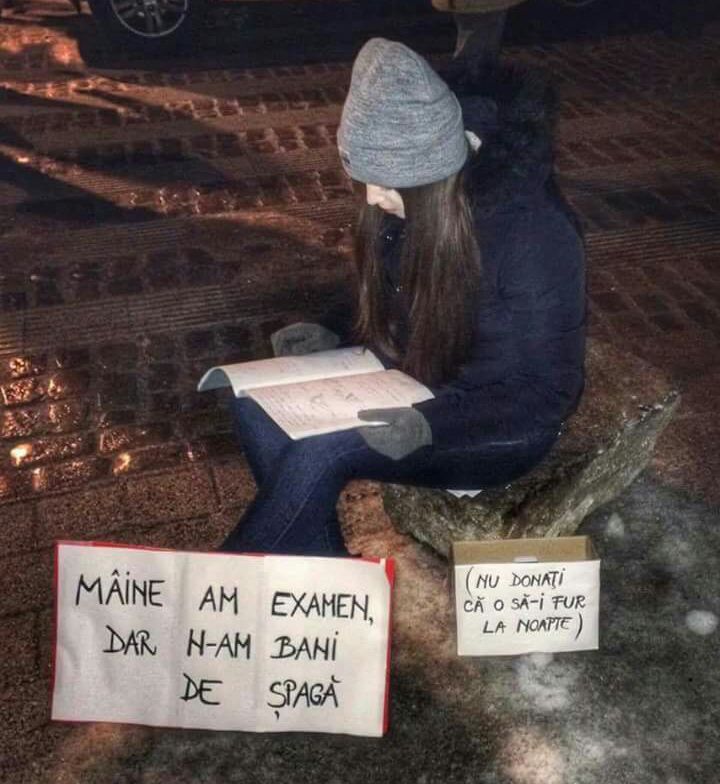 MÂINE AM EXAMEN,
DAR N-AM BANI
DE ȘPAGĂ
(NU DONAȚI
CĂ O SĂ-I FUR
LA NOAPTE)